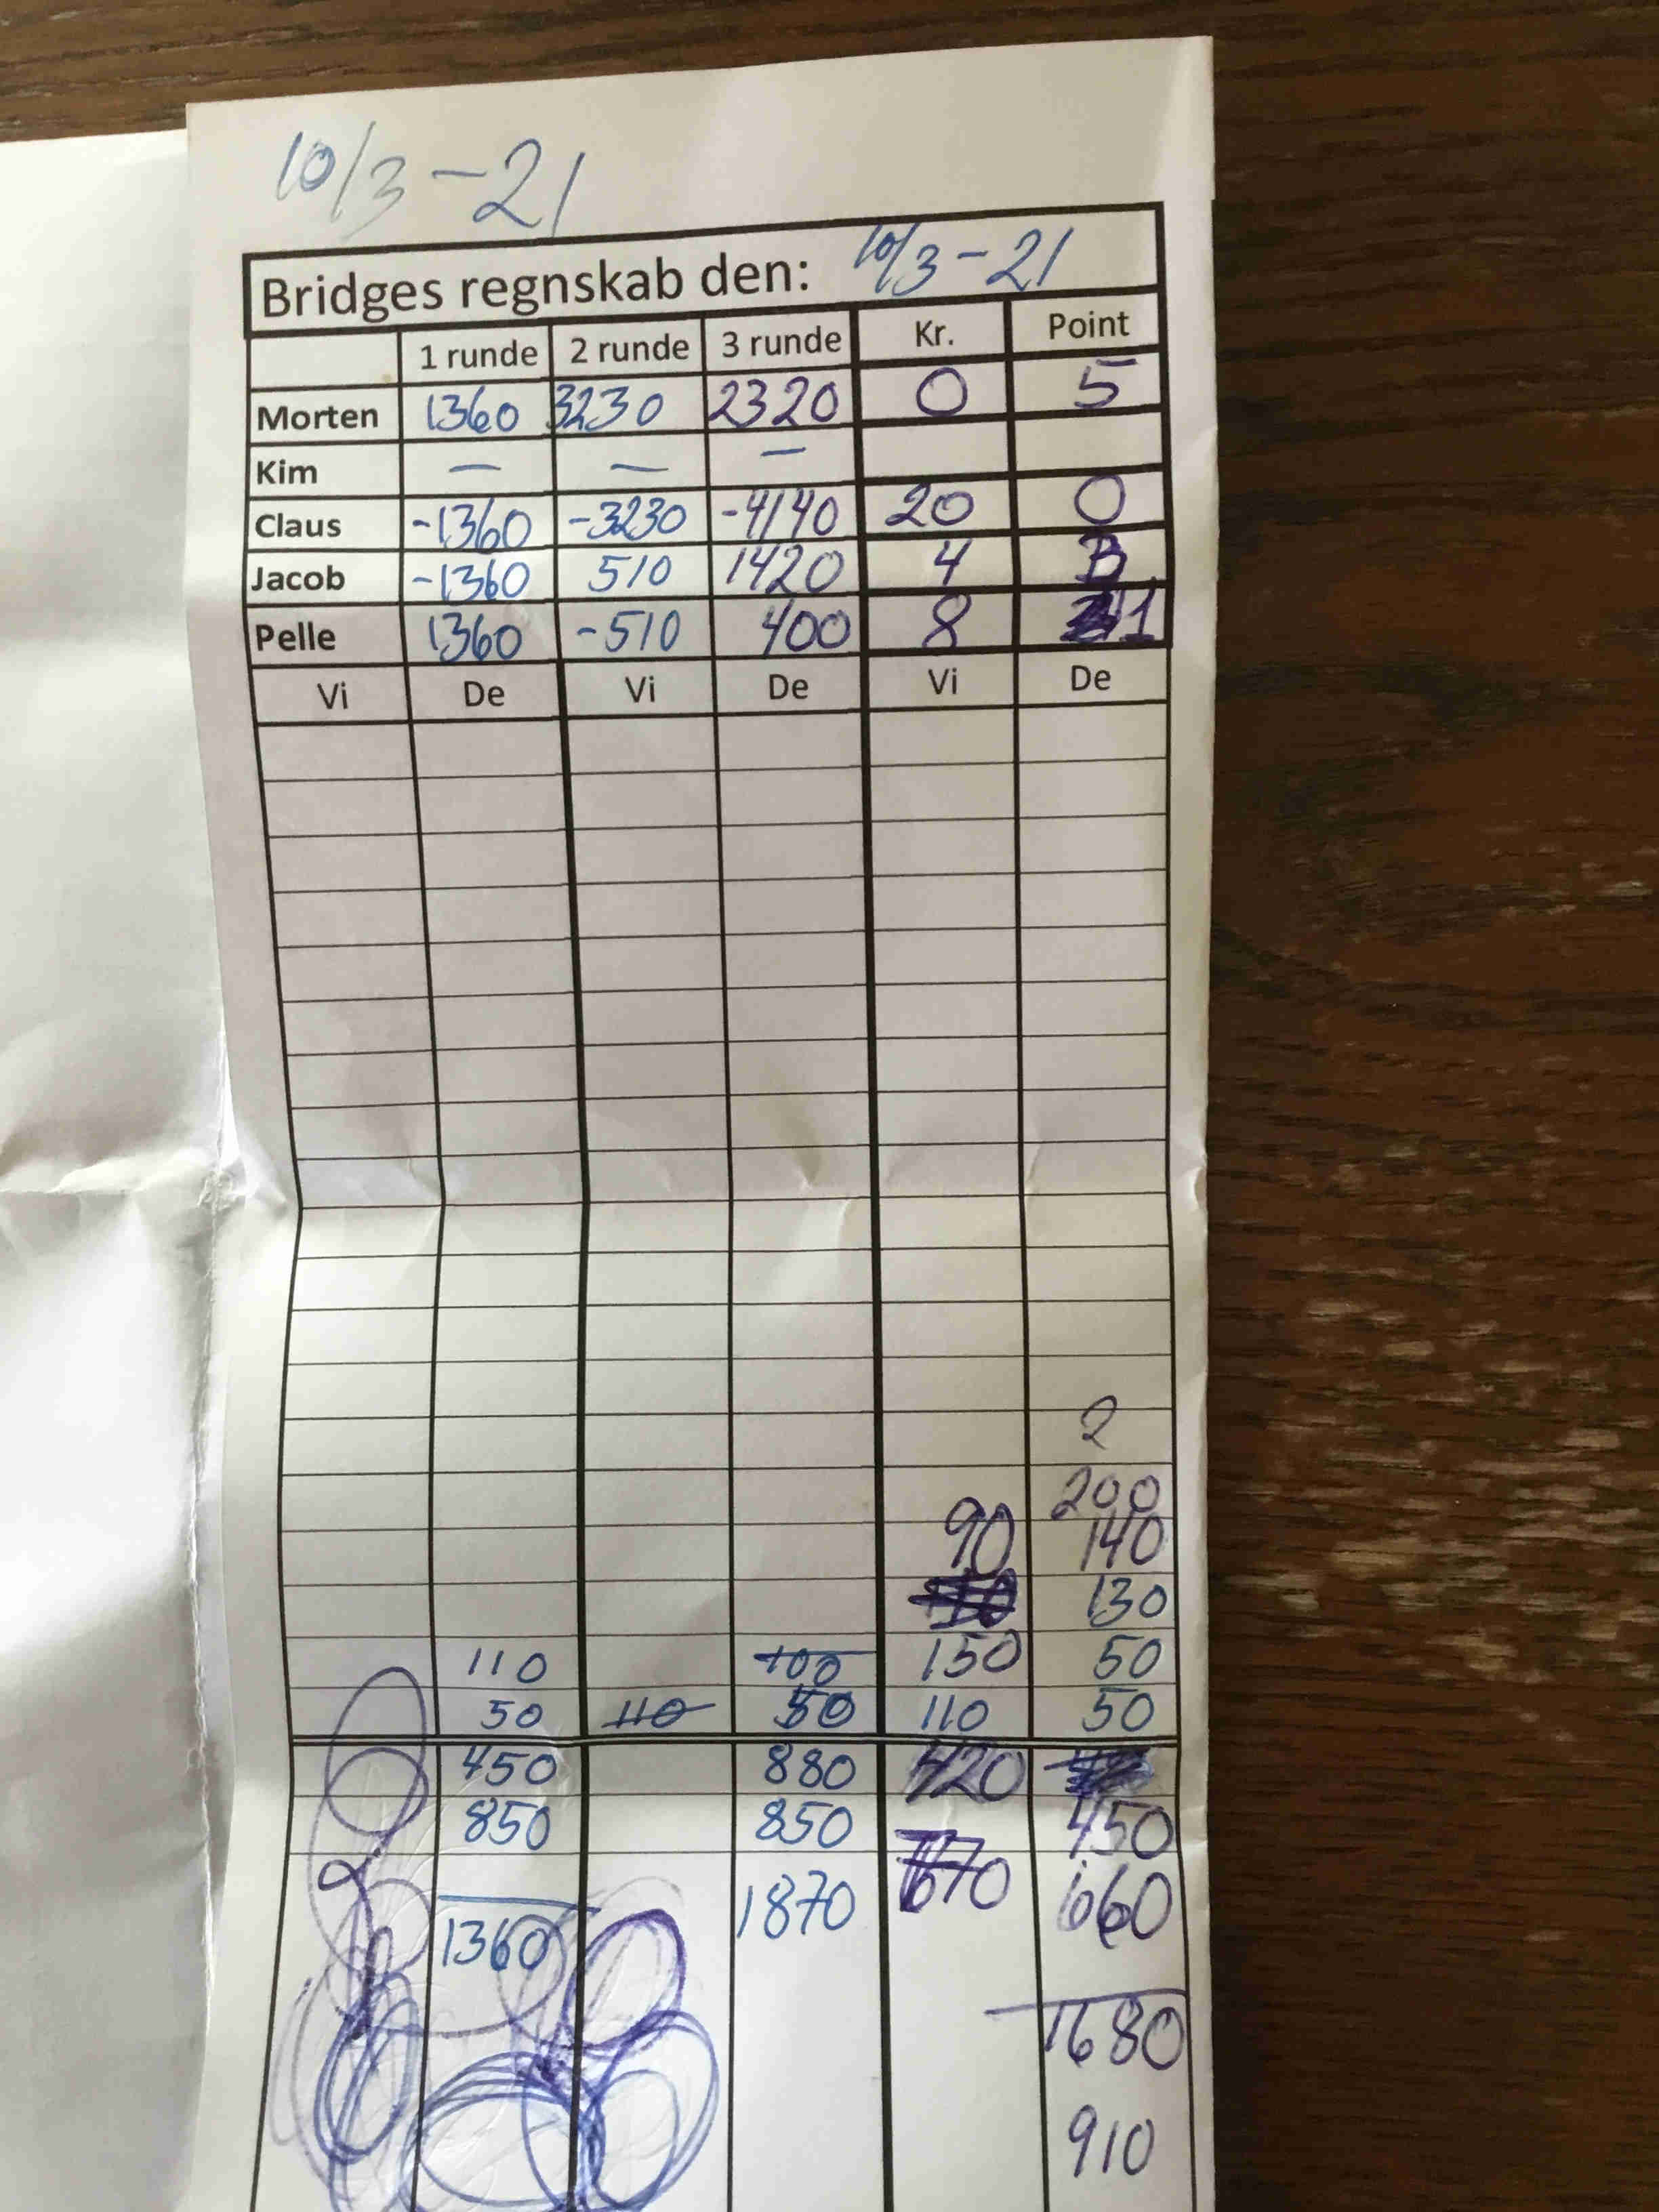 10/3-21
Bridges regnskab den: 10/3-21
1 runde 2 runde 3 runde Kr. Point
Morten 1360 3230 2320 0 5
Kim — — —
Claus -1360 -3230 -4140 20 0
Jacob -1360 510 1420 4 3
Pelle 1360 -510 400 8 1
Vi De Vi De Vi De
2
200
90 140
130
110 100 150 50
50 110 50 110 50
450 880 420
850 850 450
1870 670 660
1360
1680
910